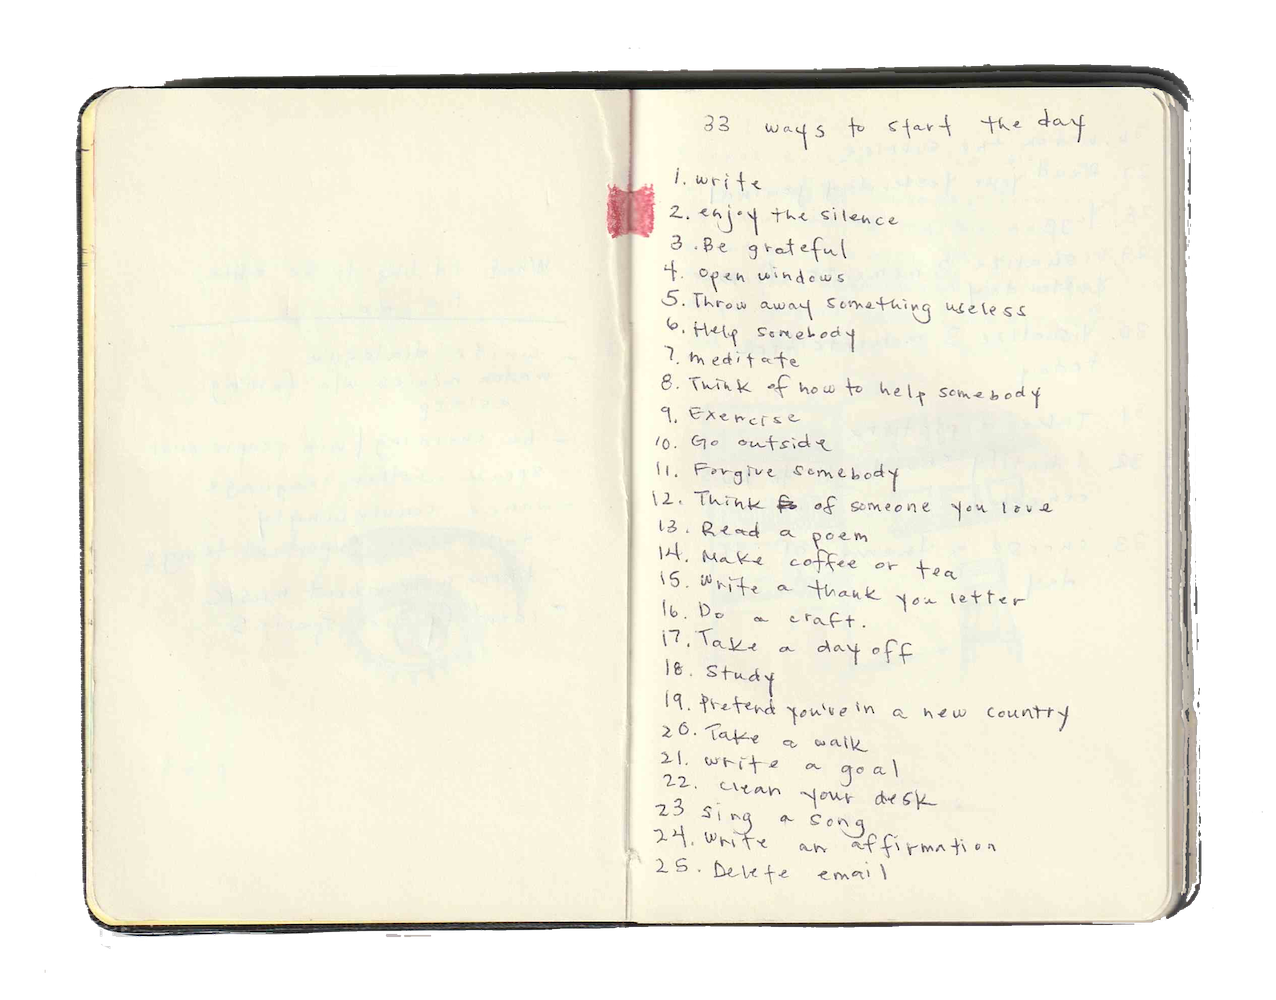 33 ways to start the day
1. write
2. enjoy the silence
3. Be grateful
4. open windows
5. Throw away something useless
6. Help somebody
7. meditate
8. Think of how to help somebody
9. Exercise
10. Go outside
11. Forgive somebody
12. Think of someone you love
13. Read a poem
14. Make coffee or tea
15. Write a thank you letter
16. Do a craft.
17. Take a day off
18. Study
19. Pretend you're in a new country
20. Take a walk
21. write a goal
22. clean your desk
23 sing a song
24. Write an affirmation
25. Delete email